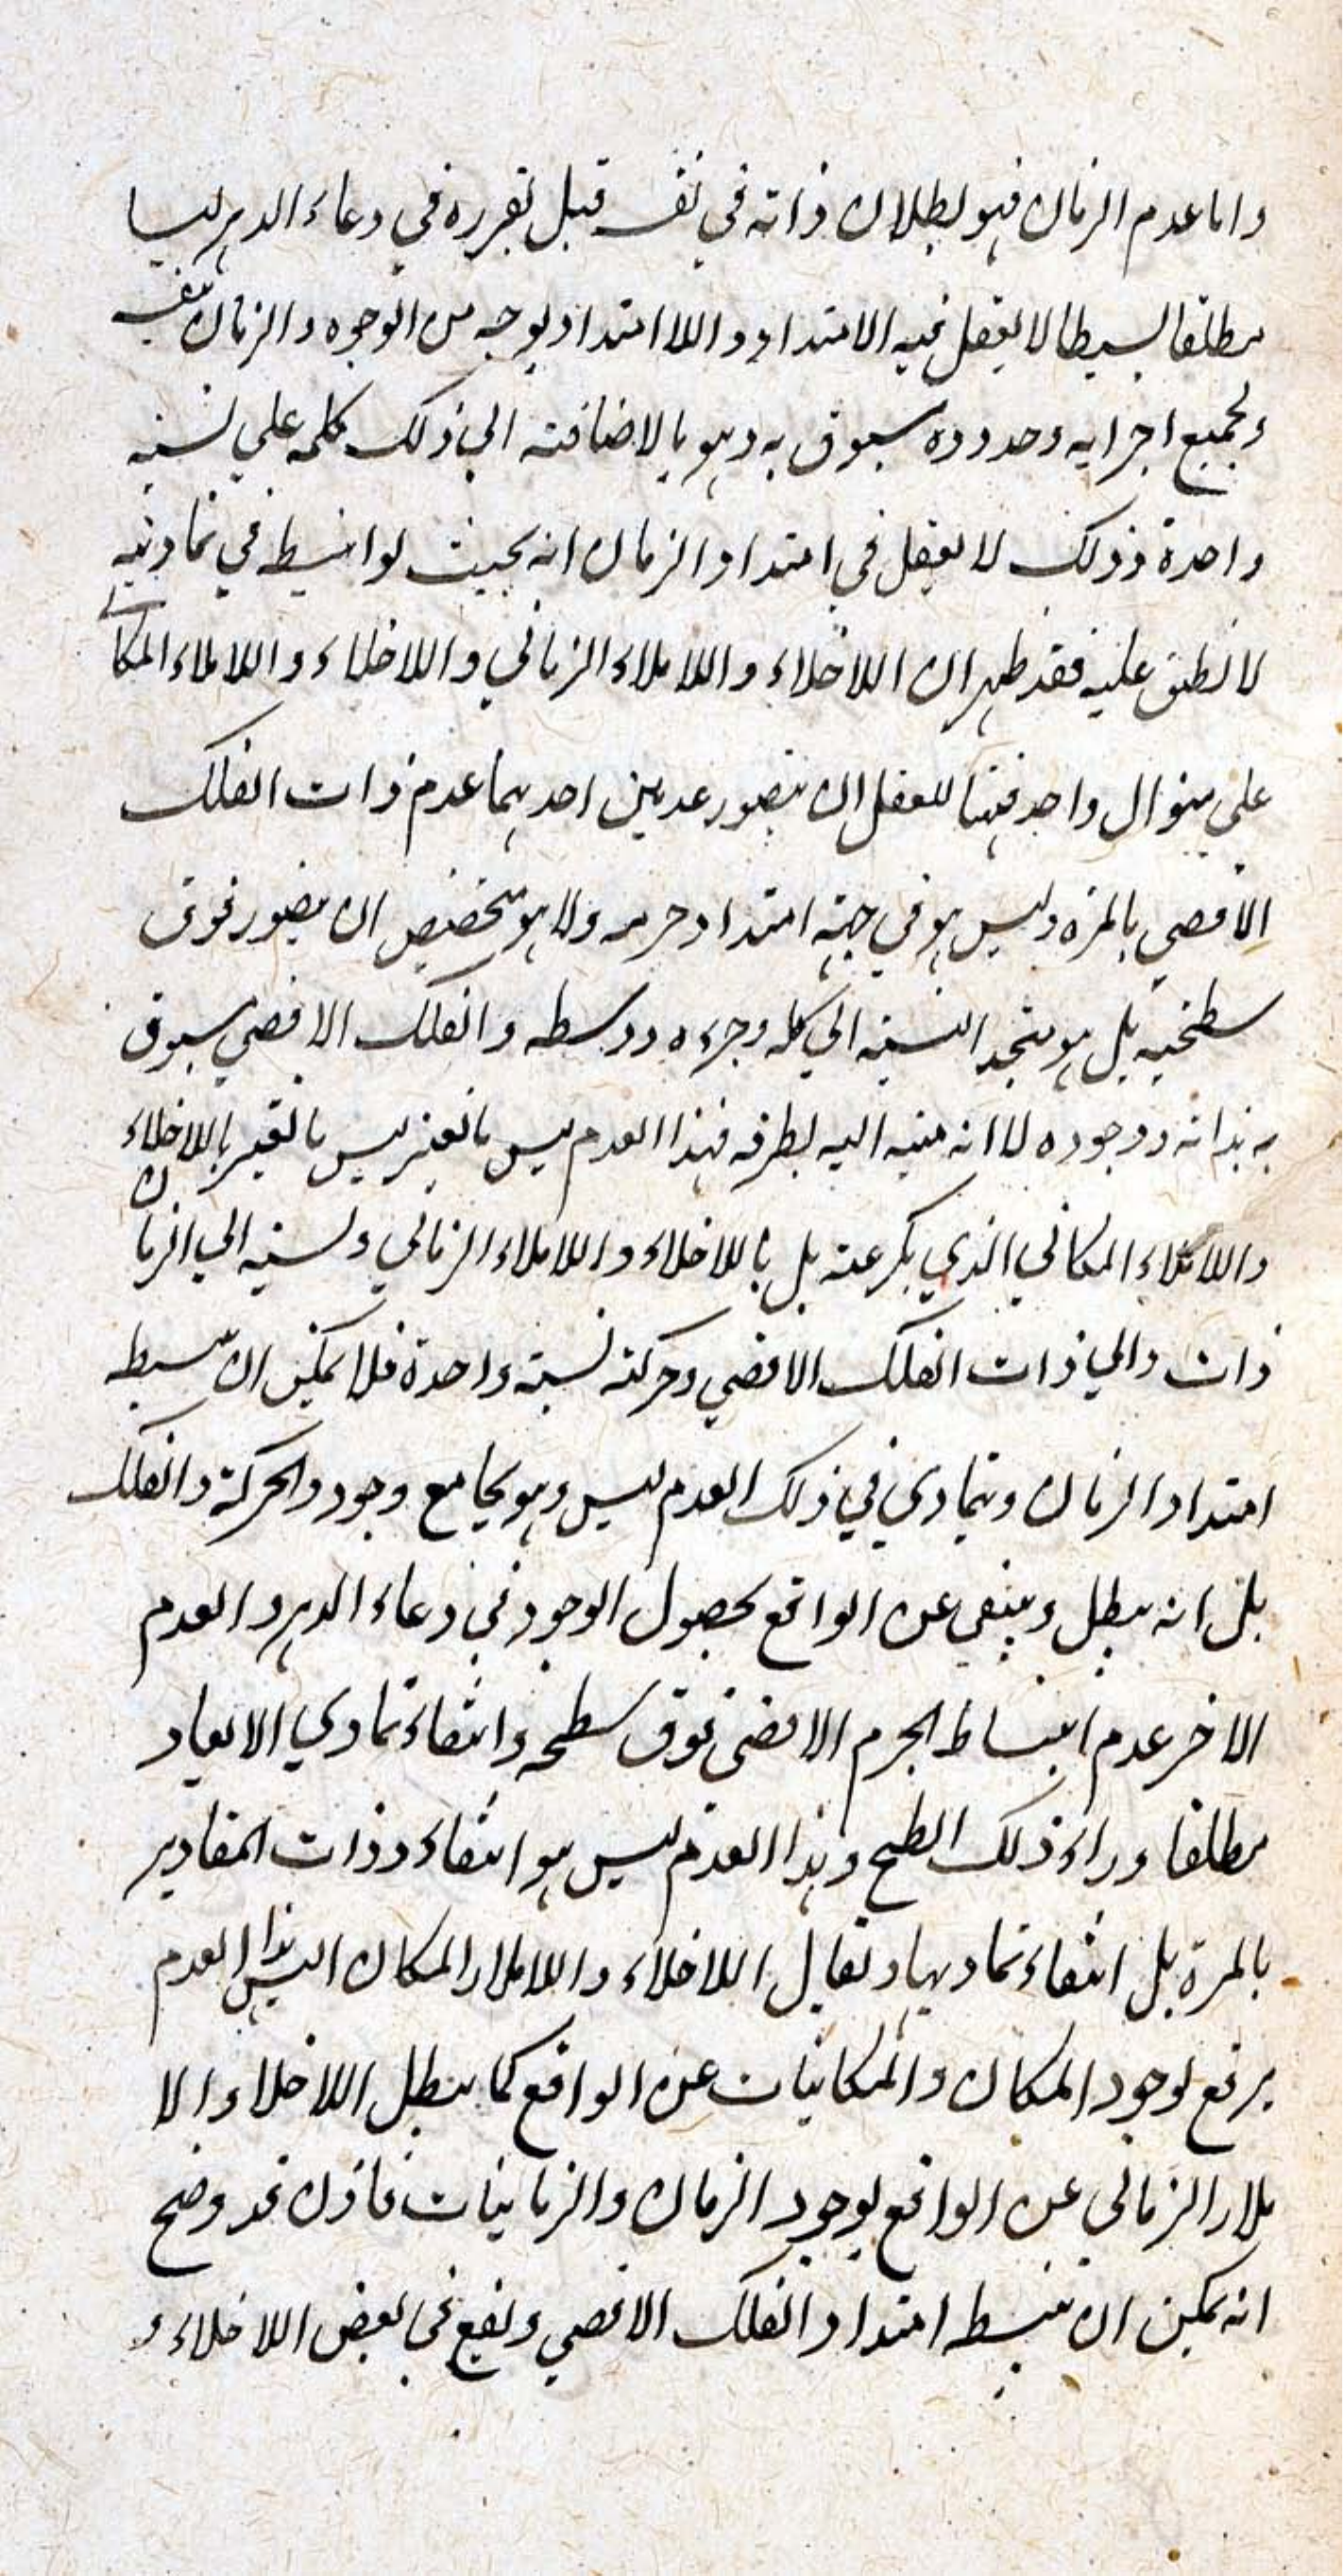 واما عدم الزمان فهو بطلان ذاته في نفسه قبل تقرره في وعاء الدهر ليسا
مطلقا بسيطا لا يعقل فيه الامتداد واللاامتداد بوجه من الوجوه والزمان بنفسه
وبجميع اجزايه وحدوده مسبوق به وهو بالاضافته الي ذلك كله علي نسبة
واحدة وذلك لا يعقل في امتداد الزمان انه بحيث لو انبسط في تماديه
لانطبق عليه فقد ظهر ان اللاخلاء واللاملاء الزماني واللاخلاء واللاملاء المكا
علي منوال واحد فهنا للعقل ان يتصور عدمين احدهما عدم ذات الفلك
الاقصي بالمرة وليس هو في جهة امتداد جرمه ولا هو متخصص ان يتصور فوق
سطحيه بل هو متحد النسبة الي كله وجزءه ووسطه والفلك الاقصي مسبوق
به بذاته ووجوده لا انه منته اليه بطرفه فهذا العدم ليس يا لعبر ليس بالقير باللاخلاء
واللاملاء المكاني الذي يكر عنه بل باللاخلاء واللاملاء الزماني ونسبته الي الزمان
ذات والي ذات الفلك الاقصي وحركته نسبة واحدة فلا يمكن ان ينبسط
امتداد الزمان ويتمادي في ذلك العدم ليس وهو يجامع وجود الحركة والفلك
بل انه يبطل وينتفي عن الواقع بحصول الوجود في وعاء الدهر والعدم
الاخر عدم انبساط الجرم الاقصي فوق سطحه وانتفاء تمادي الابعاد
مطلقا وراء ذلك الطح وهذا العدم ليس هو انتفاء وذات المقادير
بالمرة بل انتفاء تماديها ويقابل اللاخلاء واللاملاء المكان اليس هذا العدم
يرتفع بوجود المكان والمكانيات عن الواقع كما يبطل اللاخلاء والا
ملاء الزماني عن الواقع بوجود الزمان والزمانيات فاذن قد وضح
انه يمكن ان ينبسط امتداد الفلك الاقصي ويقع في بعض اللاخلاء و